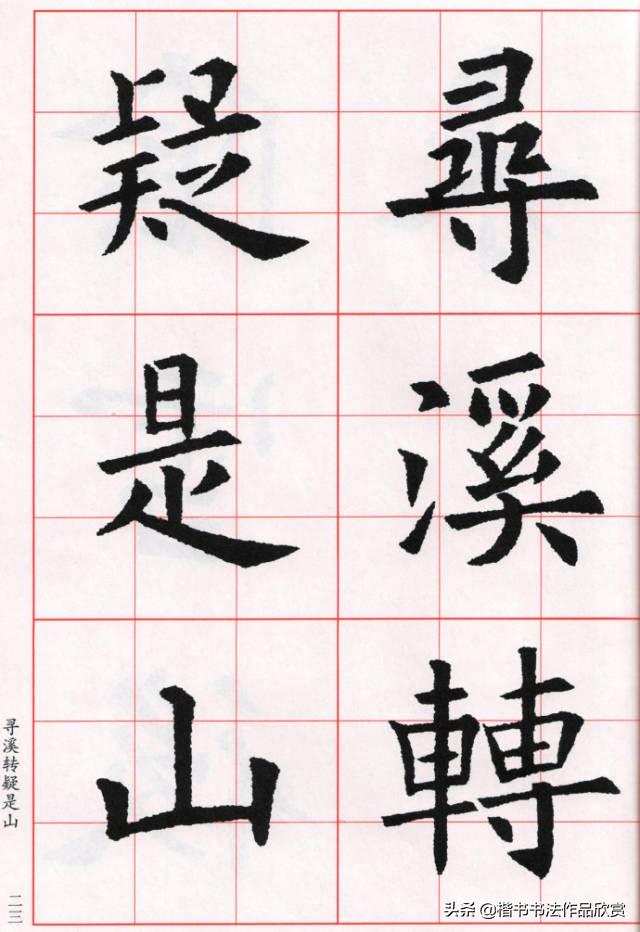 尋溪轉
疑是山
寻溪转疑是山
二三
头条 @楷书书法作品欣赏